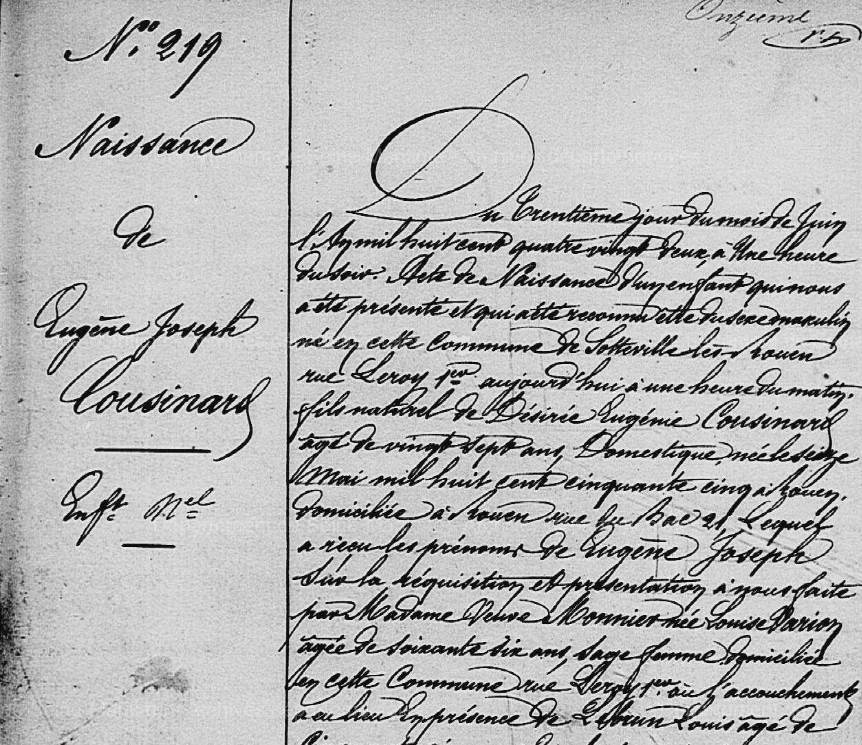 Onzième
N.° 219
Naissance
de
Eugène Joseph
Cousinard
Enft. Nel
Du Trentième jour du mois de Juin
l'An mil huit cent quatre vingt deux, à Une heure
du soir. Acte de Naissance d'un enfant qui nous
a été présenté et qui a été reconnu être du sexe masculin
né en cette Commune de Sotteville-lès-Rouen
rue Leroy 1er aujourd'hui à une heure du matin.
fils naturel de Désirée Eugénie Cousinard
âgé de vingt sept ans, Domestique, née le seize
Mai mil huit cent cinquante cinq à Rouen.
domiciliée à Rouen rue du Bac 21, Lequel
a reçu les prénoms de Eugène Joseph
Sur la réquisition et présentation à nous faite
par Madame Veuve Monnier née Louise Varion
âgée de soixante six ans, sage femme domiciliée
en cette Commune rue Leroy 1er où l'accouchement
a eu lieu En présence de Lebrun Louis âgé de